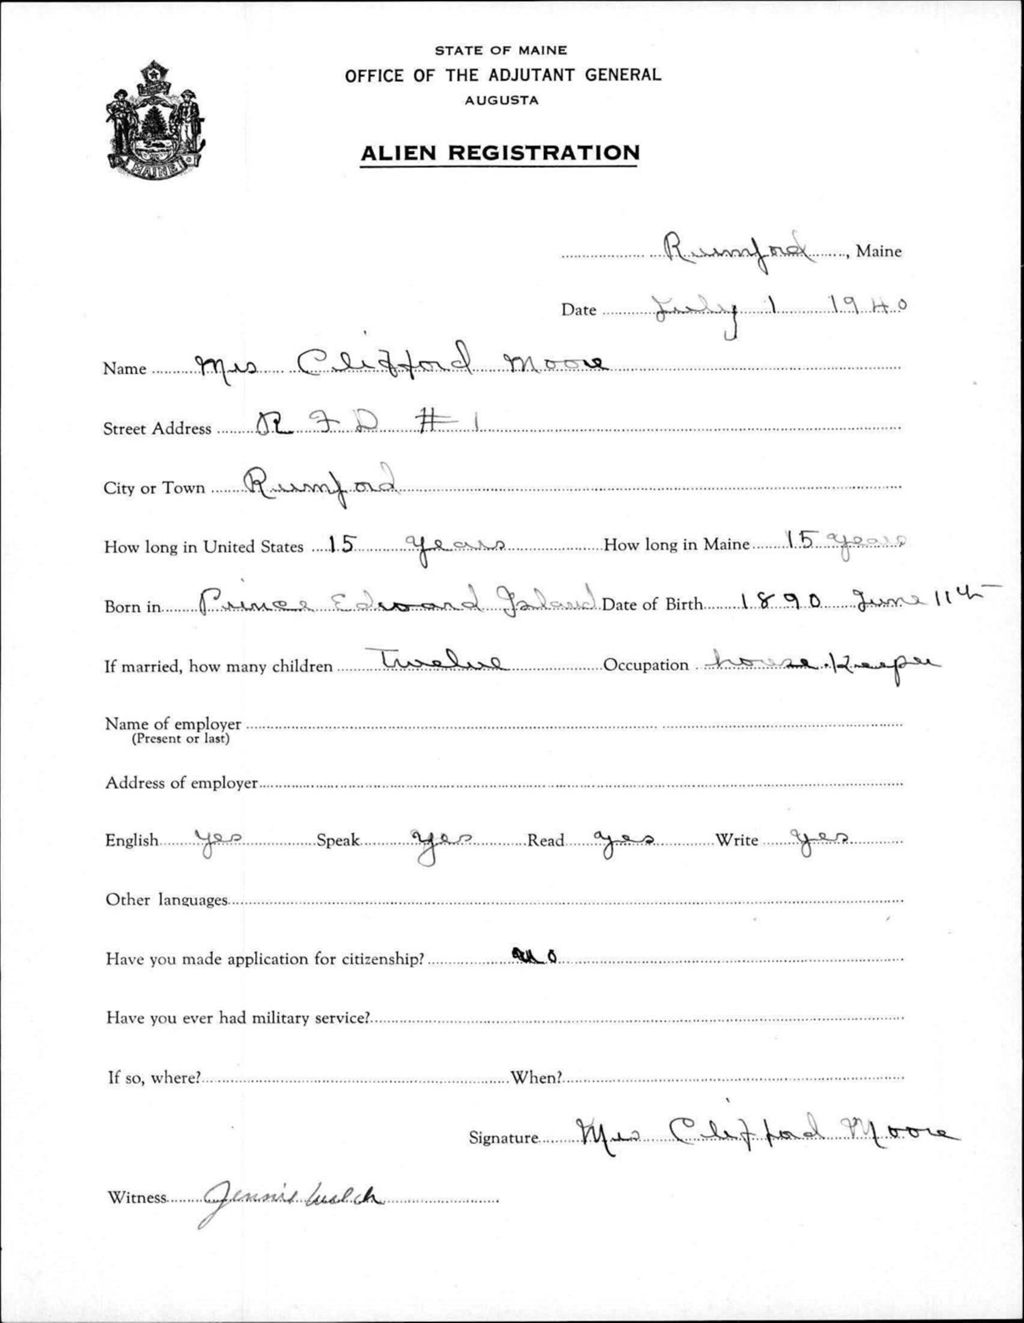 STATE OF MAINE
OFFICE OF THE ADJUTANT GENERAL
AUGUSTA
ALIEN REGISTRATION
MAINE
Rumford, Maine
Date July 1 1940
Name Mrs Clifford Moore
Street Address R F D # 1
City or Town Rumford
How long in United States 15 years How long in Maine 15 years
Born in Prince Edward Island Date of Birth 1890 June 11th
If married, how many children Twelve Occupation house keeper
Name of employer
(Present or last)
Address of employer
English yes Speak yes Read yes Write yes
Other languages
Have you made application for citizenship? no
Have you ever had military service?
If so, where? When?
Signature Mrs Clifford Moore
Witness Jennie Welch